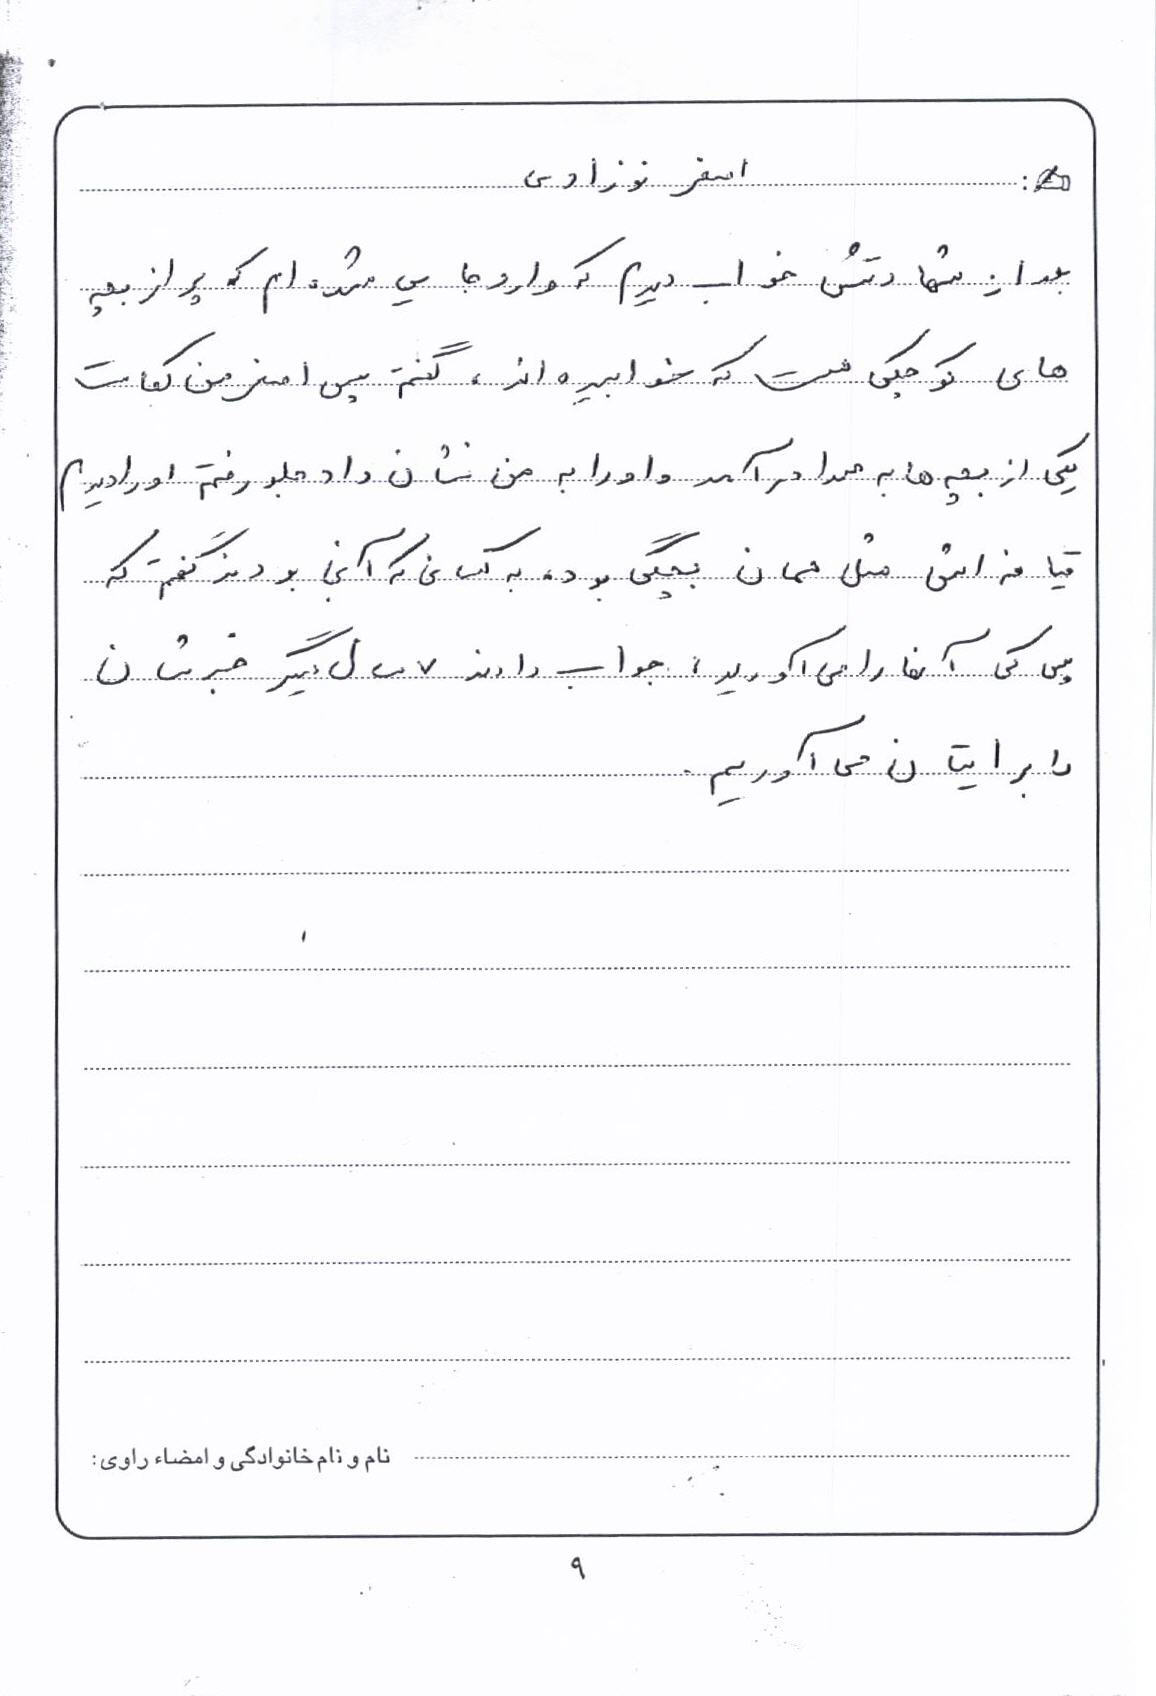 اصغر نوزادی
بعد از شهادتش خواب دیدم که وارد جایی شده ام که پر از بچه
های کوچکی هست که خوابیده اند، گفتم پس اصغر من کجاست
یکی از بچه ها به صدا درآمد و او را به من نشان داد جلو رفتم او را دیدم
قیافه اش مثل همان بچگی بود، به کسانی که آنجا بودند گفتم که
پس کی آنها را می آورید، جواب دادند ۷ سال دیگر خبرشان
را برایتان می آوریم.
نام و نام خانوادگی و امضاء راوی:
۹